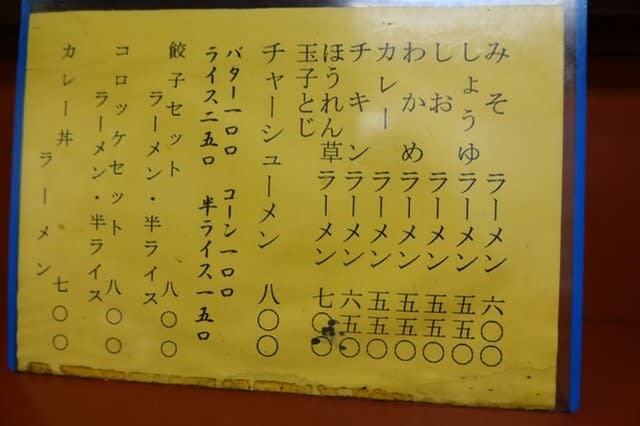 みそラーメン 六〇〇
しょうゆラーメン 五五〇
しおラーメン 五五〇
わかめラーメン 五五〇
カレーラーメン 五五〇
チキンラーメン 六五〇
ほうれん草ラーメン 七〇〇
玉子とじ
チャーシューメン 八〇〇
バター一〇〇 コーン一〇〇
ライス二五〇 半ライス一五〇
餃子セット 八〇〇
ラーメン・半ライス
コロッケセット 八〇〇
ラーメン・半ライス
カレー丼 ラーメン 七〇〇